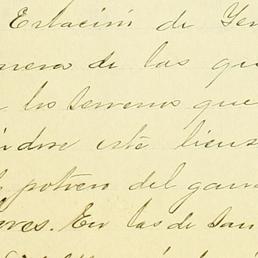 Estación de Yer
nera de las qu
los terrenos que
este lieu
potrero del gana
res. En las de San